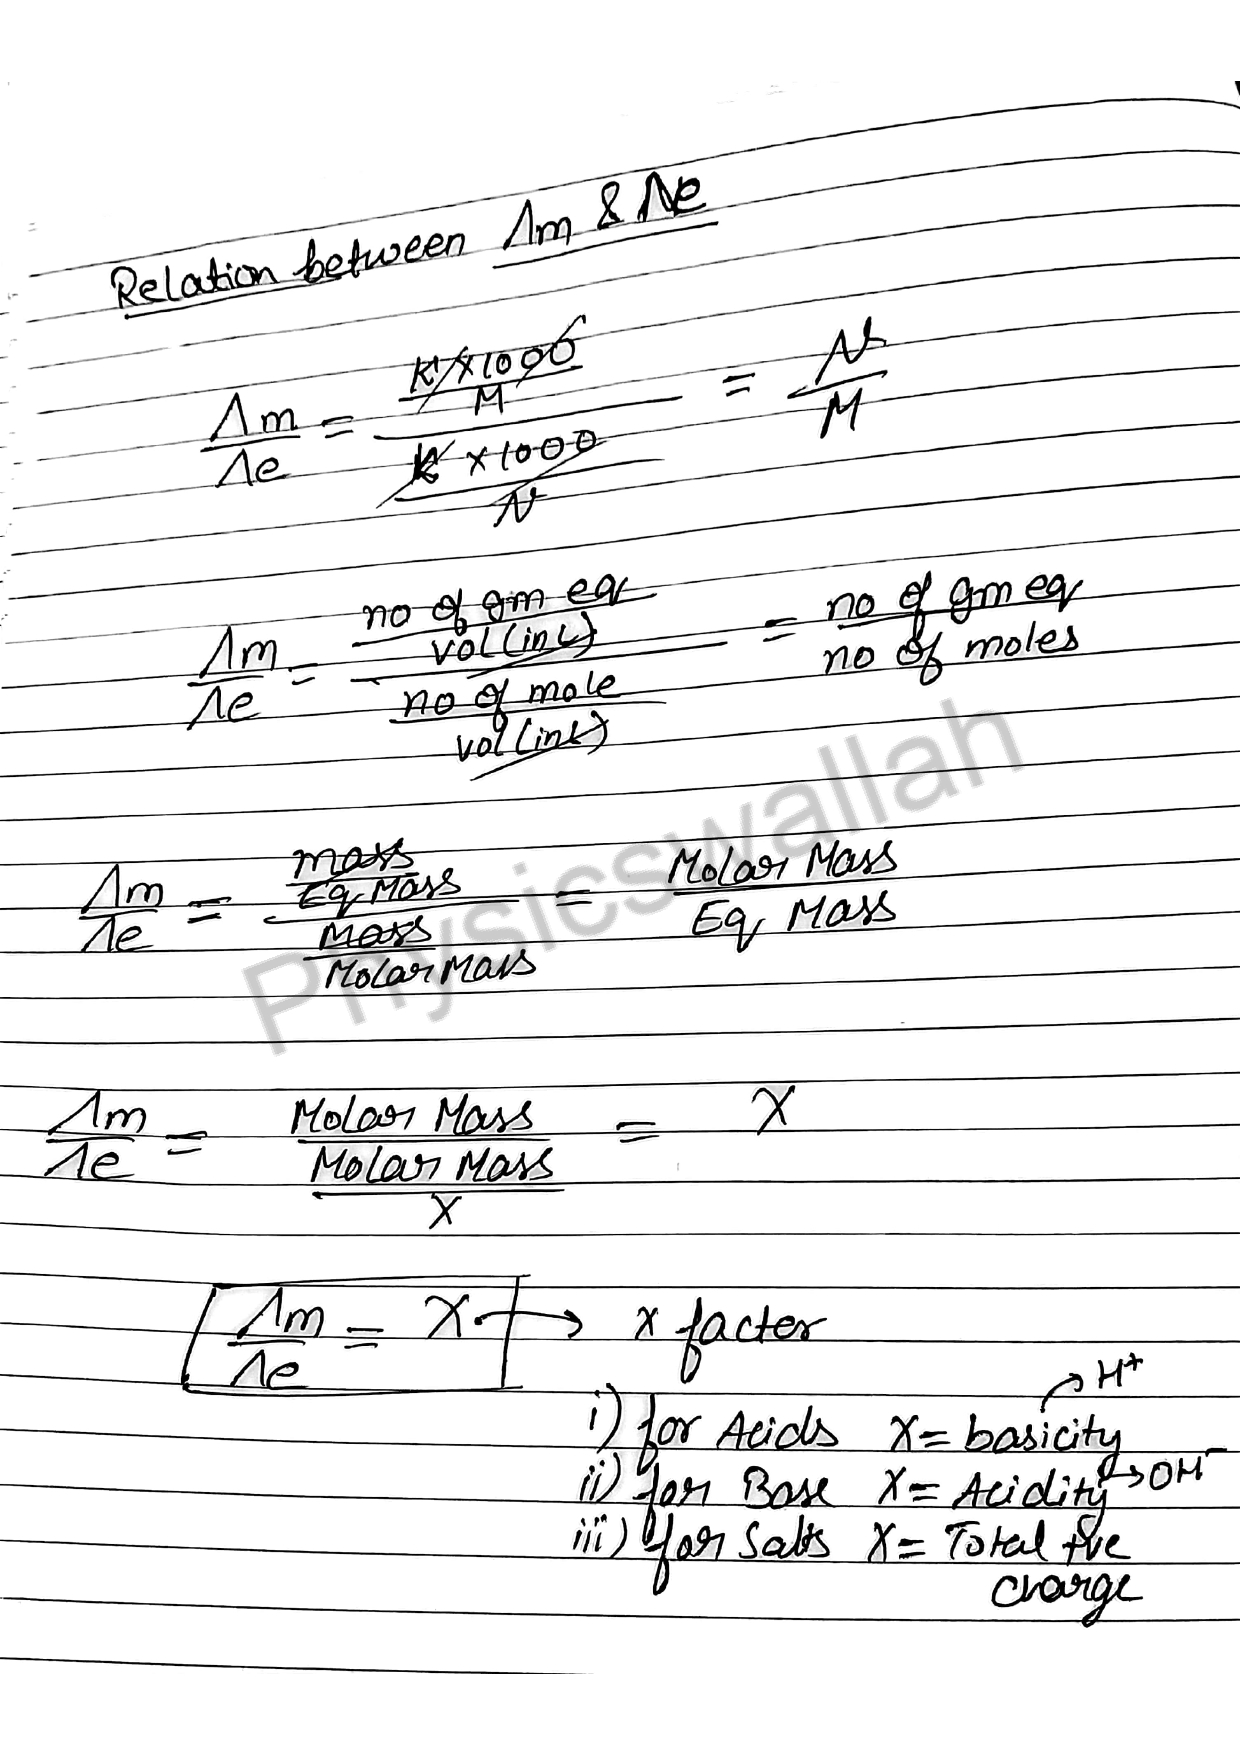 Relation between Λm & Λe
Λm/Λe = (K × 1000/M)/(K × 1000/N) = N/M
Λm/Λe = (no of gm eq/vol(inL))/(no of mole/vol(inL)) = no of gm eq/no of moles
Λm/Λe = (mass/Eq Mass)/(Mass/Molar Mass) = Molar Mass/Eq Mass
Physicswallah
Λm/Λe = Molar Mass/(Molar Mass/X) = X
Λm/Λe = X → x facter
i) for Acids X = basicity → H⁺
ii) for Base X = Acidity → OH⁻
iii) for Salts X = Total +ve
charge